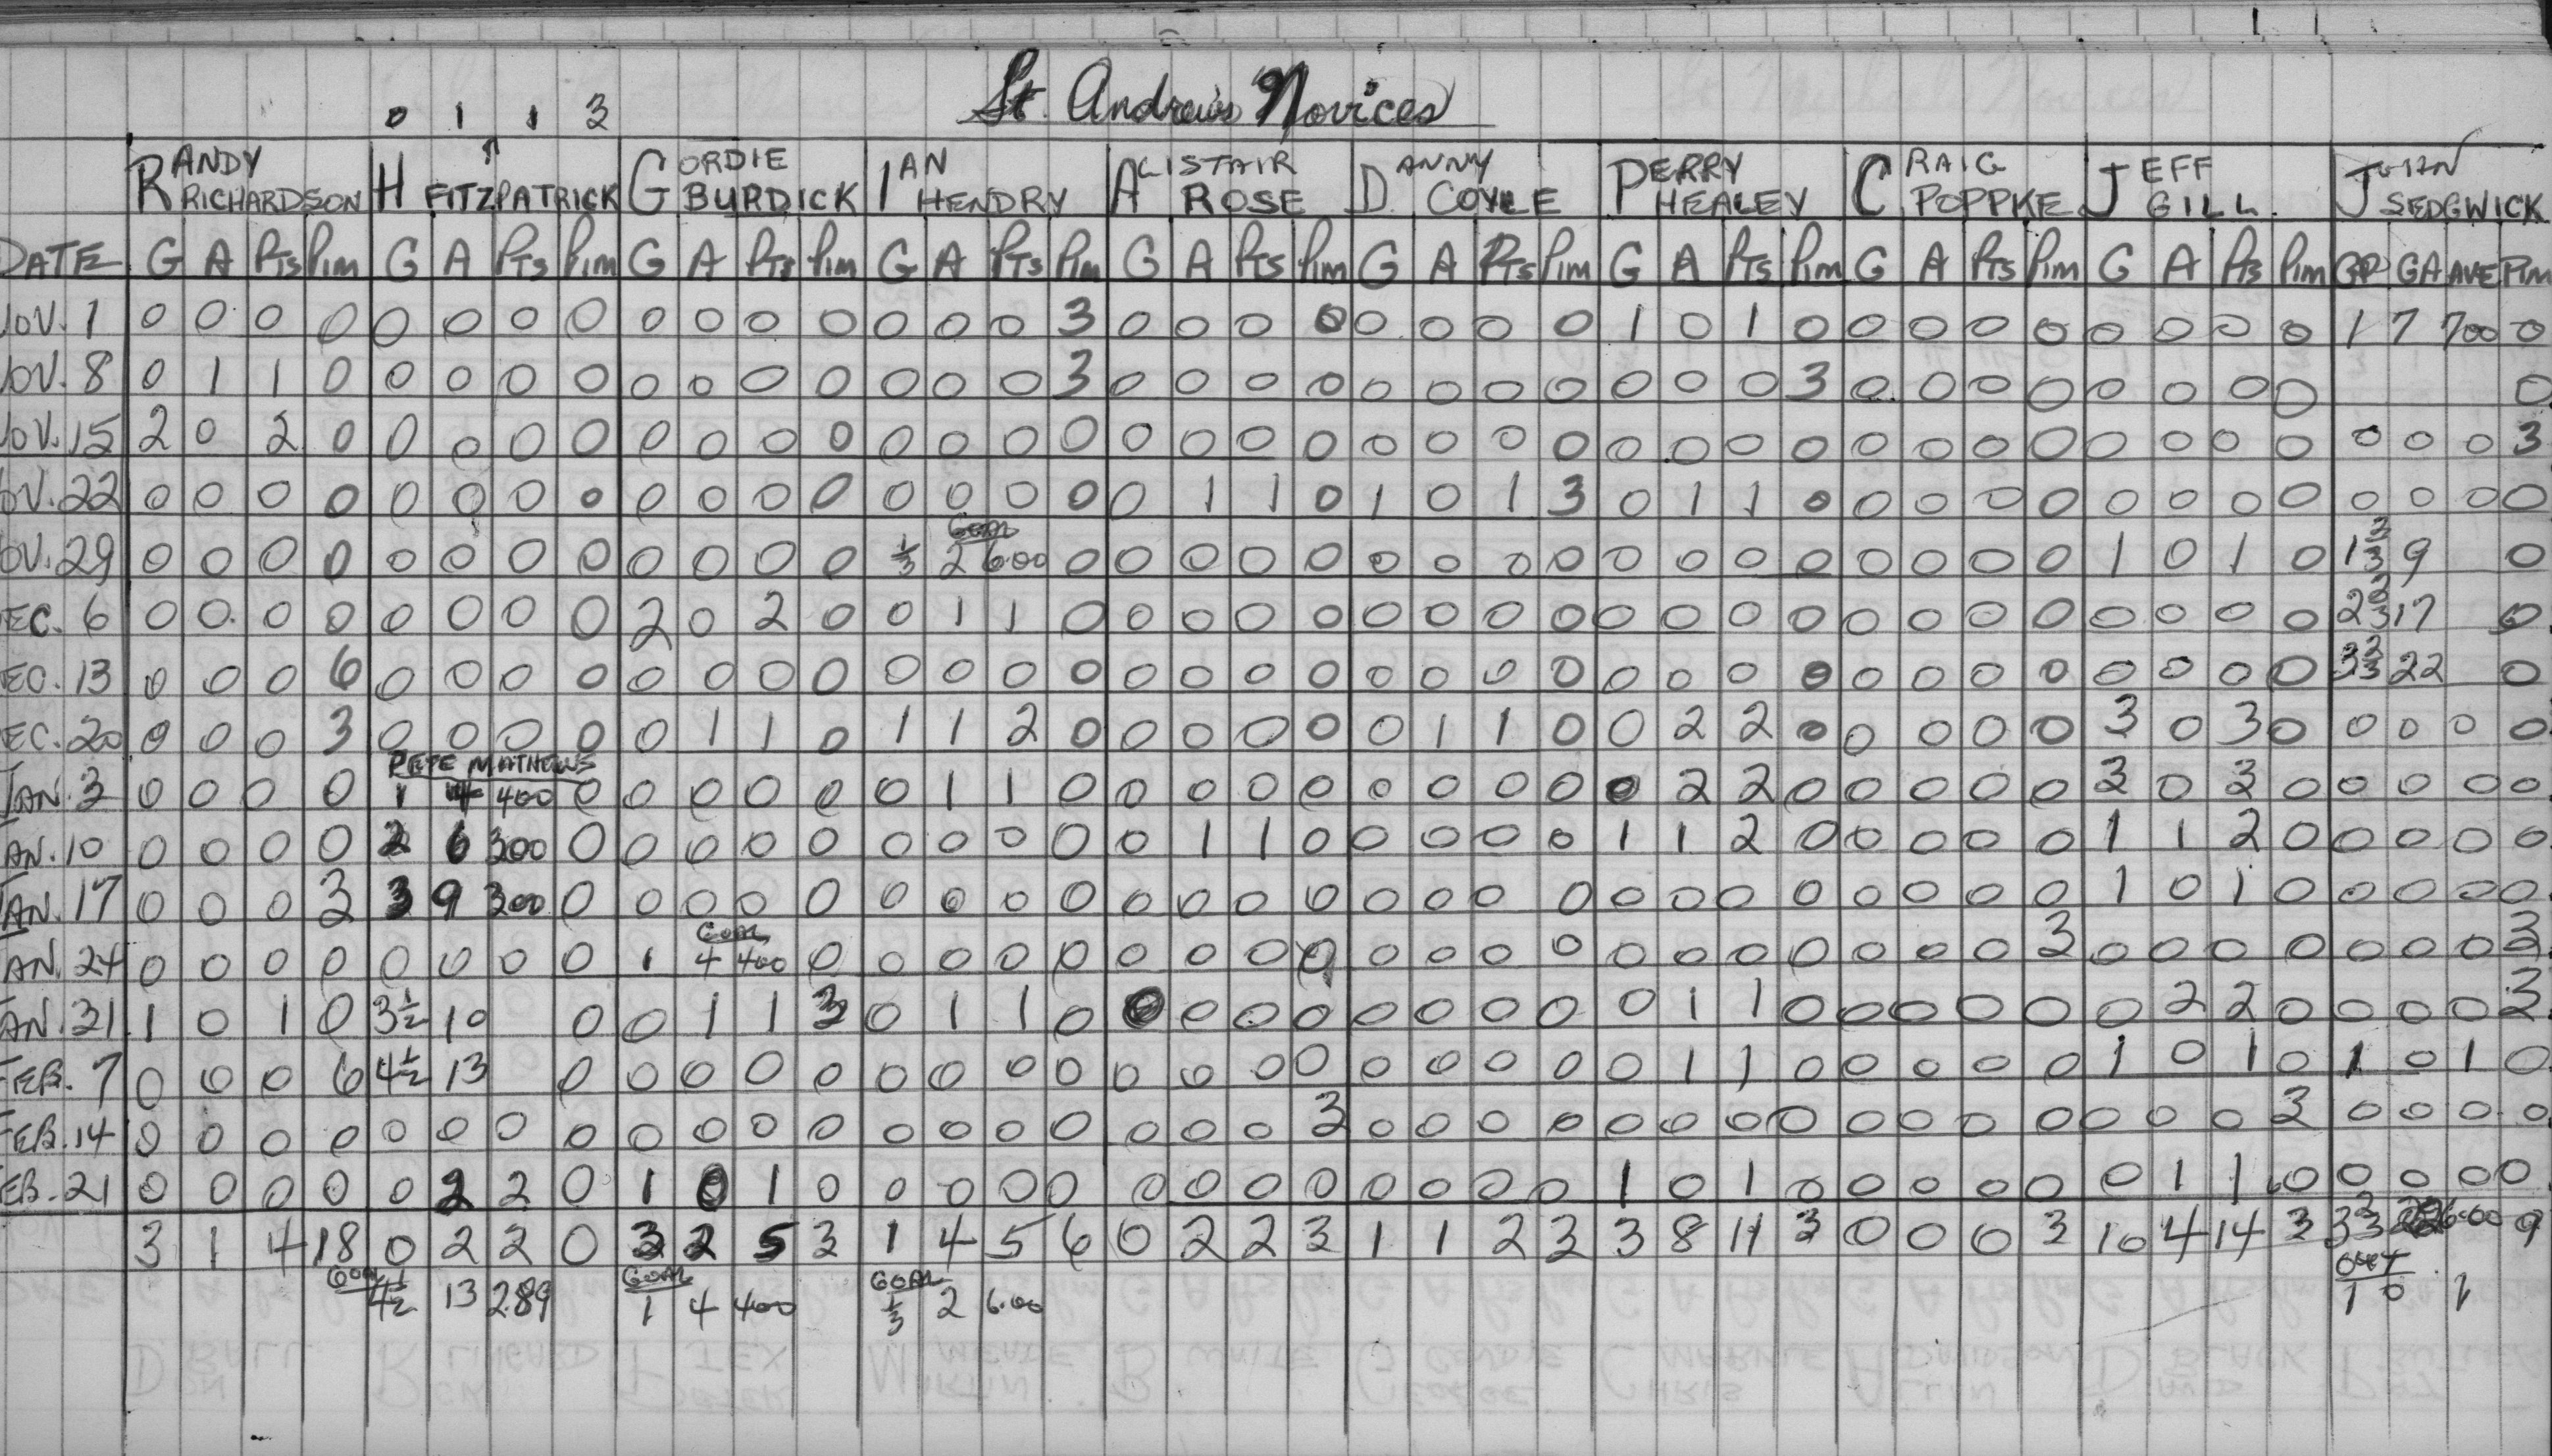 St. Andrew's Novices
0 1 1 3
RANDY RICHARDSON H FITZPATRICK GORDIE BURDICK IAN HENDRY ALISTAIR ROSE DANNY COYLE PERRY HEALEY CRAIG POPPKE JEFF GILL JOHN SEDGWICK
DATE G A Pts Pim G A Pts Pim G A Pts Pim G A Pts Pim G A Pts Pim G A Pts Pim G A Pts Pim G A Pts Pim G A Pts Pim GP GA AVE Pim
NOV. 1 0 0 0 0 0 0 0 0 0 0 0 0 0 0 0 3 0 0 0 0 0 0 0 0 1 0 1 0 0 0 0 0 0 0 0 0 1 7 700 0
NOV. 8 0 1 1 0 0 0 0 0 0 0 0 0 0 0 0 3 0 0 0 0 0 0 0 0 0 0 0 3 0 0 0 0 0 0 0 0 0
NOV. 15 2 0 2 0 0 0 0 0 0 0 0 0 0 0 0 0 0 0 0 0 0 0 0 0 0 0 0 0 0 0 0 0 0 0 0 0 0 0 0 3
NOV. 22 0 0 0 0 0 0 0 0 0 0 0 0 0 0 0 0 0 1 1 0 1 0 1 3 0 1 1 0 0 0 0 0 0 0 0 0 0 0 0 0
GOAL
NOV. 29 0 0 0 0 0 0 0 0 0 0 0 0 1/3 2 6.00 0 0 0 0 0 0 0 0 0 0 0 0 0 0 0 0 0 1 0 1 0 1 2/3 9 0
DEC. 6 0 0 0 0 0 0 0 0 2 0 2 0 0 1 1 0 0 0 0 0 0 0 0 0 0 0 0 0 0 0 0 0 0 0 0 0 2 2/3 17 0
DEC. 13 0 0 0 6 0 0 0 0 0 0 0 0 0 0 0 0 0 0 0 0 0 0 0 0 0 0 0 0 0 0 0 0 0 0 0 0 3 2/3 22 0
DEC. 20 0 0 0 3 0 0 0 0 0 1 1 0 1 1 2 0 0 0 0 0 0 1 1 0 0 2 2 0 0 0 0 0 3 0 3 0 0 0 0 0
PETE MATHEWS
JAN. 3 0 0 0 0 1 4 400 0 0 0 0 0 0 1 1 0 0 0 0 0 0 0 0 0 0 2 2 0 0 0 0 0 3 0 3 0 0 0 0 0
JAN. 10 0 0 0 0 2 6 300 0 0 0 0 0 0 0 0 0 0 1 1 0 0 0 0 0 1 1 2 0 0 0 0 0 1 1 2 0 0 0 0 0
JAN. 17 0 0 0 3 3 9 300 0 0 0 0 0 0 0 0 0 0 0 0 0 0 0 0 0 0 0 0 0 0 0 0 0 1 0 1 0 0 0 0 0
GOAL
JAN. 24 0 0 0 0 0 0 0 0 1 4 400 0 0 0 0 0 0 0 0 0 0 0 0 0 0 0 0 0 0 0 0 3 0 0 0 0 0 0 0 3
JAN. 31 1 0 1 0 3 1/2 10 0 0 1 1 3 0 1 1 0 0 0 0 0 0 0 0 0 0 1 1 0 0 0 0 0 0 2 2 0 0 0 0 3
FEB. 7 0 0 0 6 4 1/2 13 0 0 0 0 0 0 0 0 0 0 0 0 0 0 0 0 0 0 1 1 0 0 0 0 0 1 0 1 0 1 0 1 0
FEB. 14 0 0 0 0 0 0 0 0 0 0 0 0 0 0 0 0 0 0 0 3 0 0 0 0 0 0 0 0 0 0 0 0 0 0 0 3 0 0 0 0
FEB. 21 0 0 0 0 0 2 2 0 1 0 1 0 0 0 0 0 0 0 0 0 0 0 0 0 1 0 1 0 0 0 0 0 0 1 1 0 0 0 0 0
3 1 4 18 0 2 2 0 3 2 5 3 1 4 5 6 0 2 2 3 1 1 2 3 3 8 11 3 0 0 0 3 10 4 14 3 3 2/3 22 6.00 9
GOAL 4 1/2 13 2.89 GOAL 1 4 400 GOAL 1/3 2 6.00 OUT 1 0 1